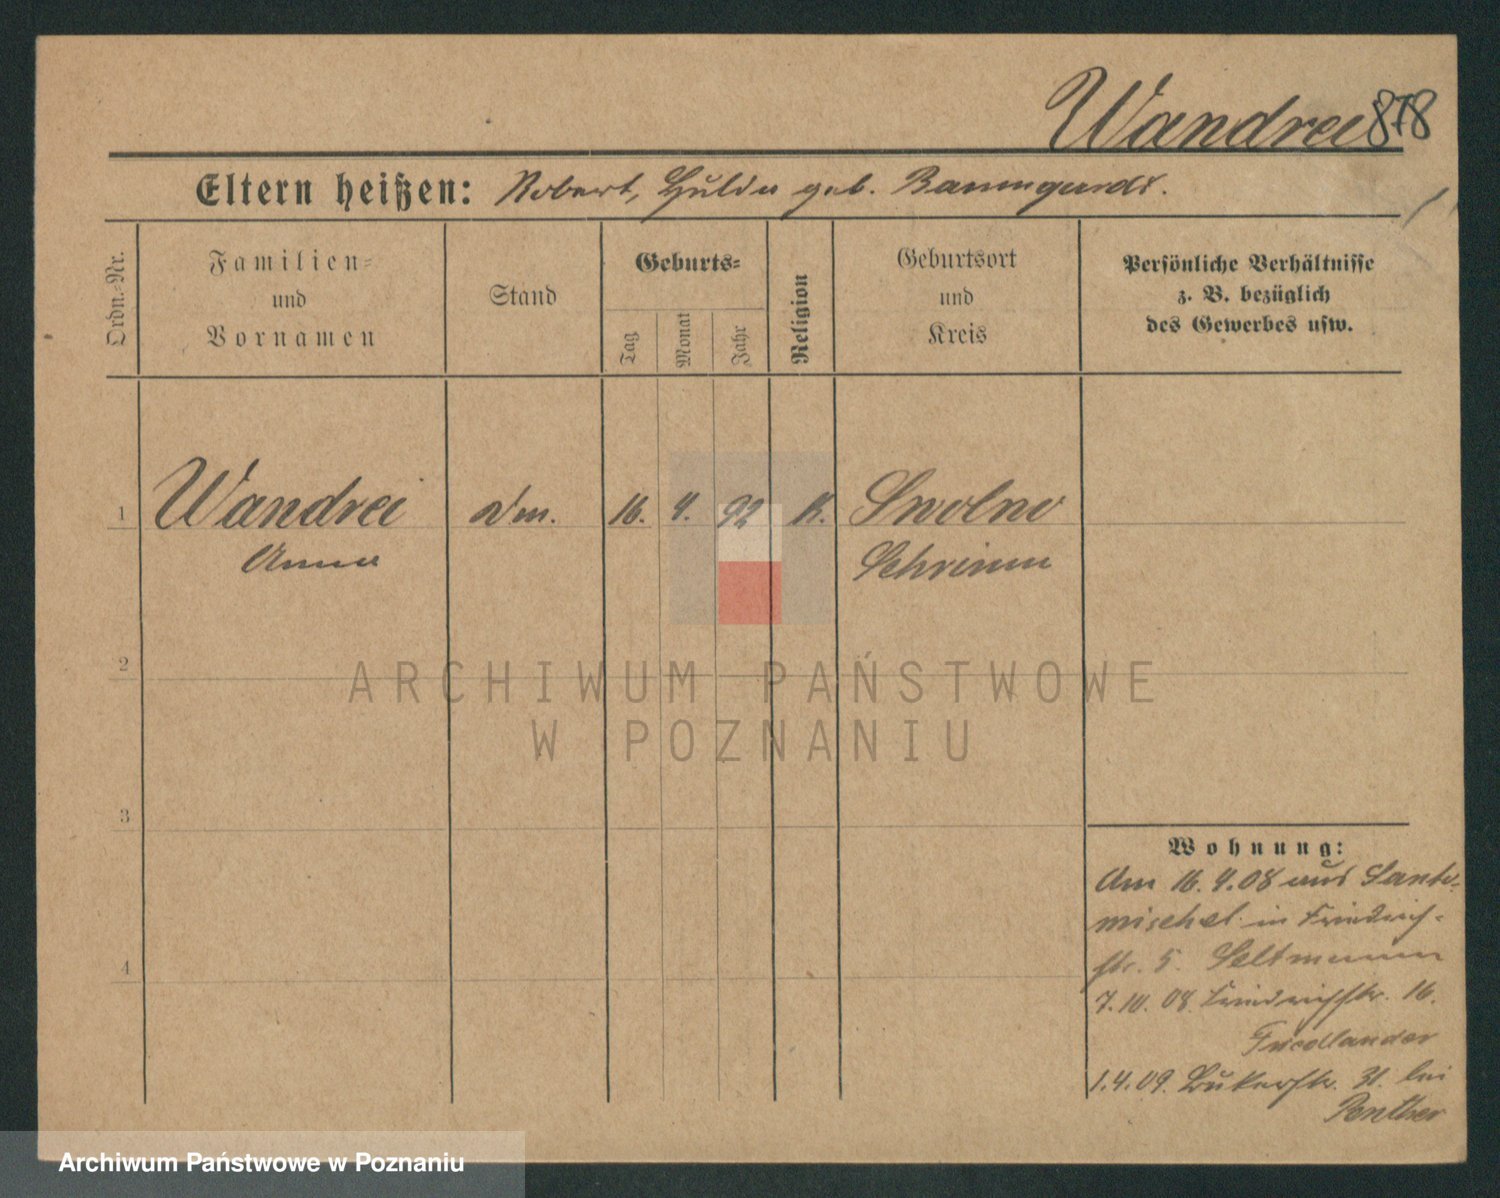 Wandrei 878
Eltern heißen: Robert, Hulda geb. Baumgardt.
Ordn.-Nr.
Familien-
und
Vornamen
Stand
Geburts-
Tag
Monat
Jahr
Religion
Geburtsort
und
Kreis
Persönliche Verhältnisse
z. B. bezüglich
des Gewerbes usw.
1 Wandrei 16. 4. 92 K. Snolno
Anna Schrimm
2
ARCHIWUM PAŃSTWOWE
W POZNANIU
3
4
Wohnung:
Am 16.4.08 aus Santo-
mischel in Friedrich-
str. 5. Seltmann
7.10.08 Friedrichstr. 16.
Friedlander
1.4.09. Bukerstr. 31 bei
Penther
Archiwum Państwowe w Poznaniu